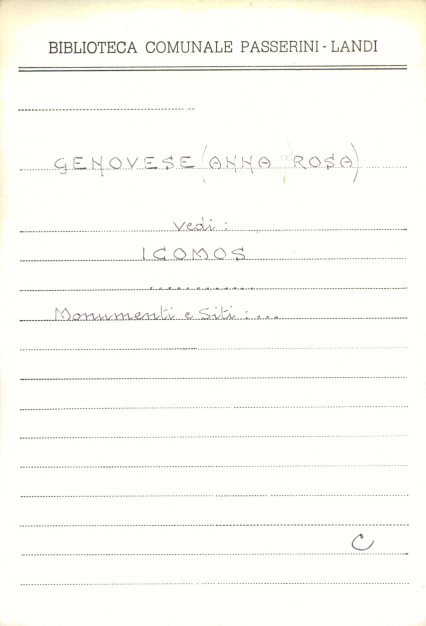 BIBLIOTECA COMUNALE PASSERINI - LANDI
GENOVESE (ANNA ROSA)
vedi :
ICOMOS
Monumenti e Siti : ...
C